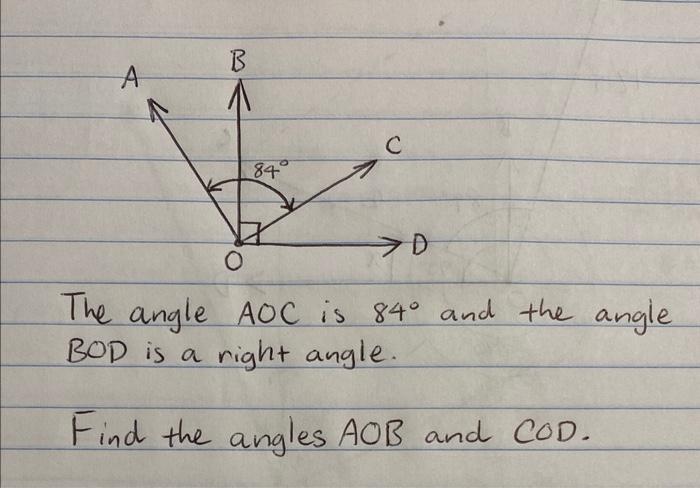 B
A
C
84°
D
O
The angle AOC is 84° and the angle
BOD is a right angle.
Find the angles AOB and COD.